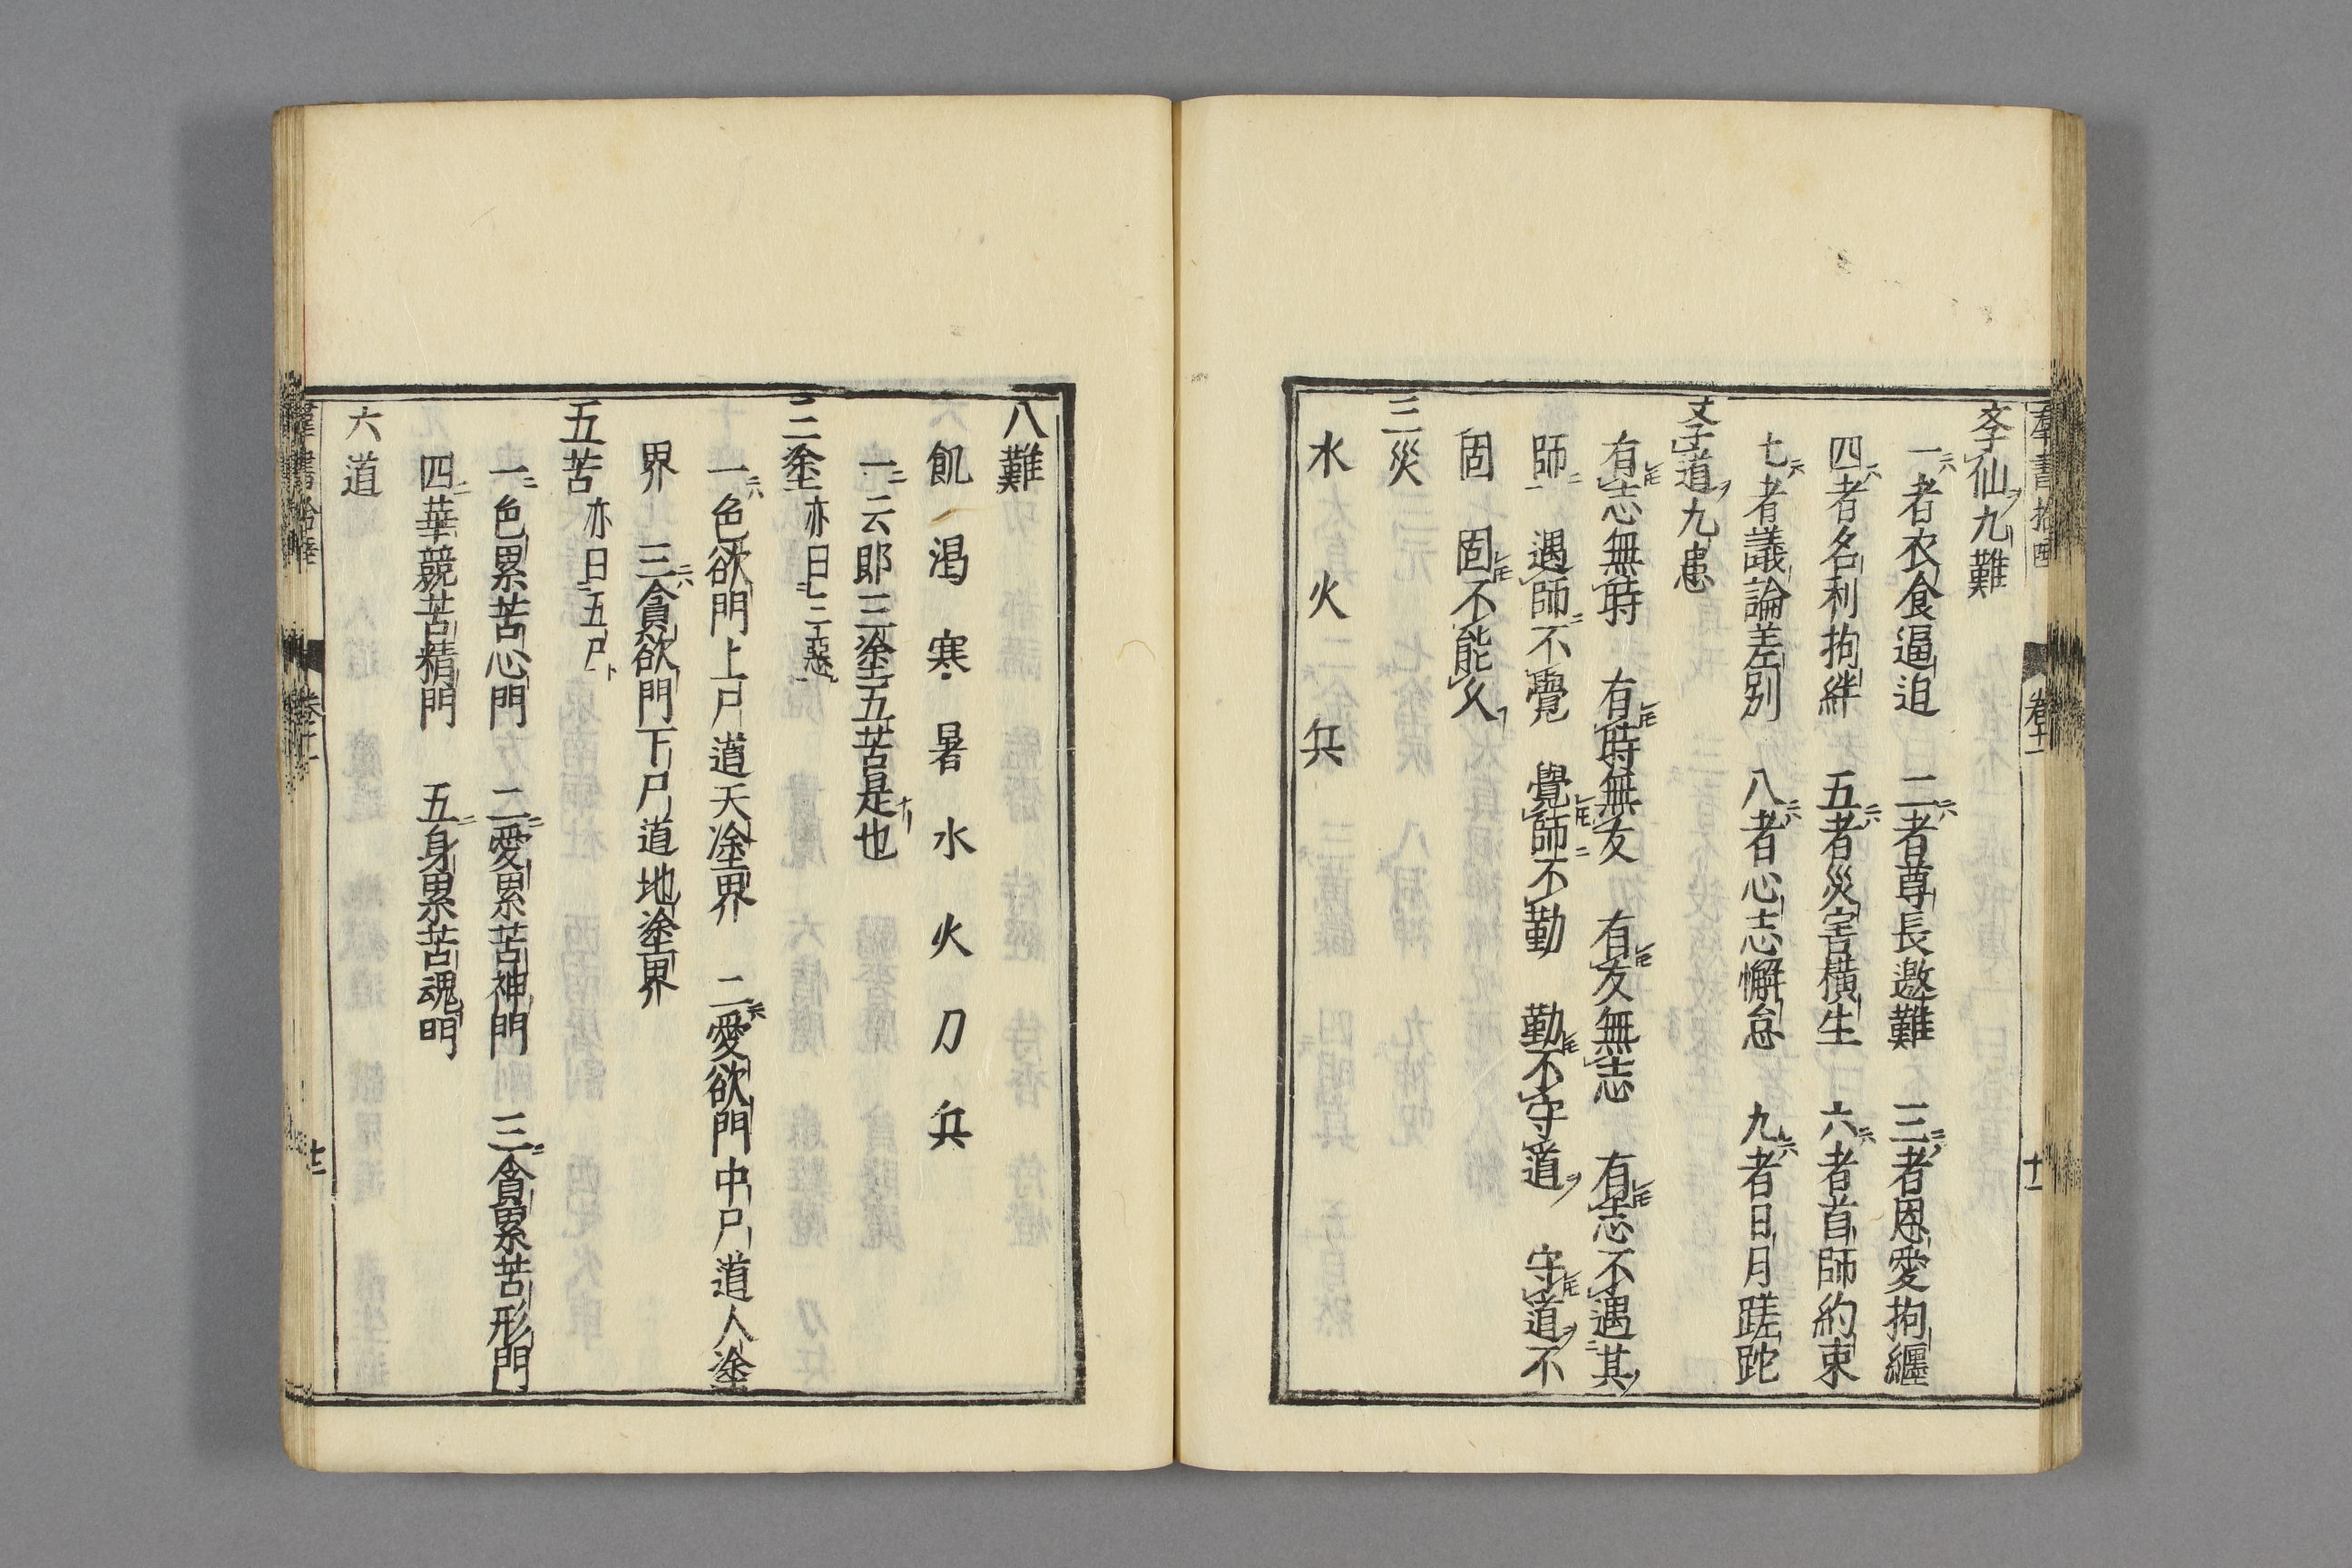 群書拾唾 卷十二 十一
斈仙九難
一者衣食逼迫 二者尊長邀難 三者恩愛拘纏
四者名利拘絆 五者災害橫生 六者首師約束
七者議論差別 八者心志懈怠 九者日月蹉跎
斈道九患
有志無時 有時無友 有友無志 有志不遇其
師 遇師不覺 覺師不勤 勤不守道 守道不
固 固不能久
三災
水 火 兵
八難
飢 渴 寒 暑 水 火 刀 兵
一云即三塗五苦是也
三塗 亦曰三惡
一色欲門上尸道天塗界 二愛欲門中尸道人塗
界 三貪欲門下尸道地塗界
五苦 亦曰五尸
一色累苦心門 二愛累苦神門 三貪累苦形門
四華競苦精門 五身累苦魂門
六道